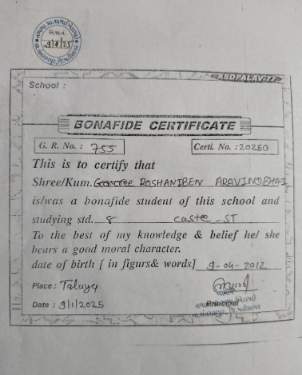 School :
BONAFIDE CERTIFICATE
G. R. No. : 755 Certi. No. : 20260
This is to certify that
Shree/Kum. ROSHANIBEN ARAVINDBHAI
is/was a bonafide student of this school and
studying std. 8 caste - ST
To the best of my knowledge & belief he/ she
bears a good moral character.
date of birth [ in figurs& words] 9-04-2012
Place : Taluyg
Date : 9/1/2025